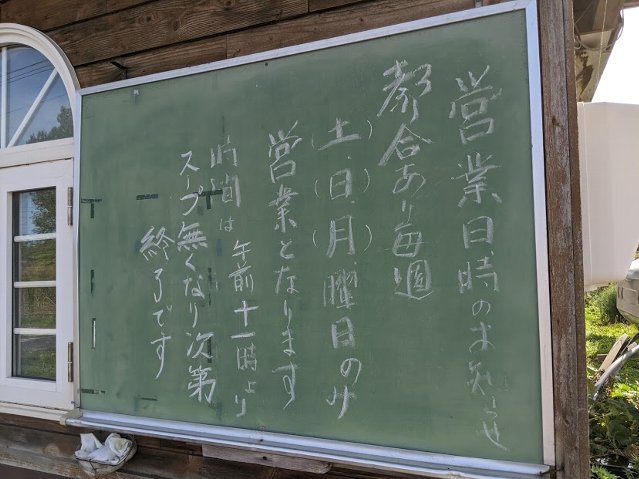 営業日時のお知らせ
都合あり毎週
(土)・(日)・(月)・曜日のみ
営業となります
時間は 午前十一時より
スープ無くなり次第
終了です